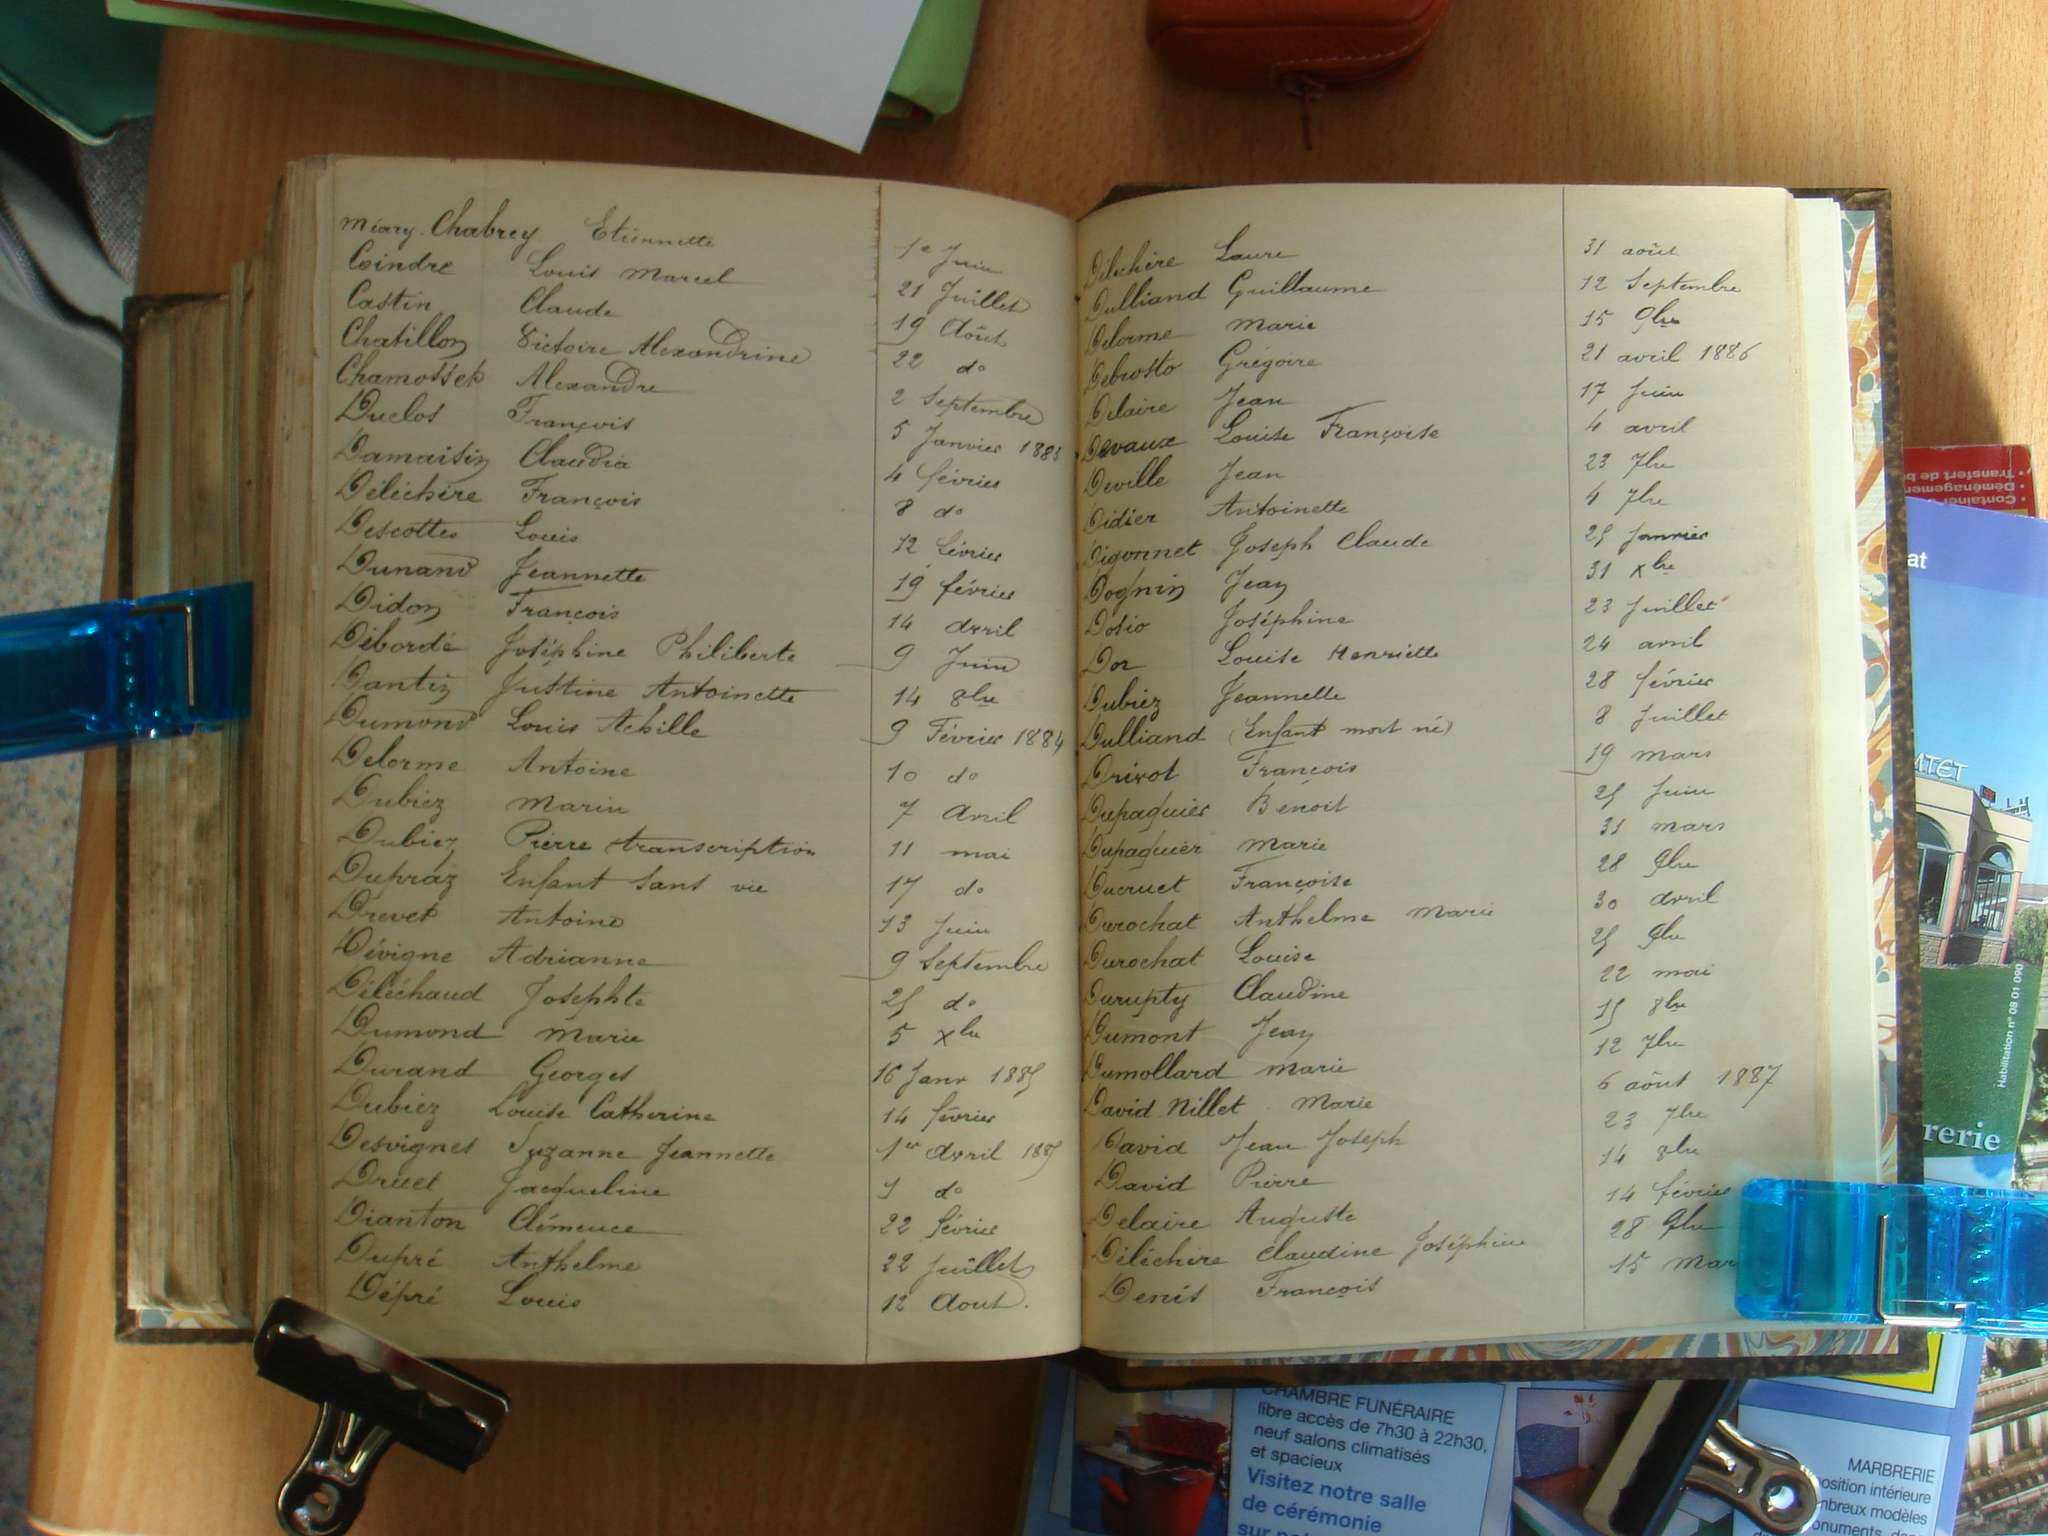 Miary-Chabrey Etiennette 1e Juin
Coindre Louis Marcel 21 Juillet
Castin Claude 19 Août
Chatillon Victoire Alexandrine 22 do
Chamossek Alexandre 2 Septembre
Duclos François 5 Janvier 1883
Damaisin Claudia 4 février
Déléchère François 8 do
Descottes Louis 12 février
Dunand Jeannette 19 février
Didon François 14 Avril
Débordé Joséphine Philiberte 9 Juin
Dantin Justine Antoinette 14 8bre
Dumond Louis Achille 9 Février 1884
Delorme Antoine 10 do
Dubiez Marin 7 Avril
Dubiez Pierre transcription 11 mai
Dupraz Enfant sans vie 17 do
Drevet Antoine 13 Juin
Dévigne Adrianne 9 Septembre
Déléchaud Josephte 25 do
Dumond Marie 5 xbre
Durand Georges 16 Janv 1885
Dubiez Louise Catherine 14 février
Desvignes Suzanne Jeannette 1er Avril 1885
Druet Jacqueline 9 do
Dianton Clémence 22 février
Dupré Anthelme 22 Juillet
Dépré Louis 12 Aout.
Déléchère Laure 31 août
Dulliand Guillaume 12 Septembre
Delorme Marie 15 9bre
Debrosto Grégoire 21 avril 1886
Delaire Jean 17 Juin
Devaux Louise Françoise 4 avril
Deville Jean 23 7bre
Didier Antoinette 4 7bre
Digonnet Joseph Claude 25 Janvier
Dognin Jean 31 xbre
Dosio Joséphine 23 Juillet
Dor Louise Henriette 24 avril
Dubiez Jeannette 28 février
Dulliand (Enfant mort né) 8 Juillet
Drivot François 19 mars
Dupaquier Benoit 25 Juin
Dupaquier Marie 31 mars
Ducruet Françoise 28 9bre
Durochat Anthelme Marie 30 Avril
Durochat Louise 25 9bre
Durupty Claudine 22 mai
Dumont Jean 15 8bre
Dumollard Marie 12 7bre
David Nillet Marie 6 août 1887
David Jean Joseph 23 7bre
David Pierre 14 8bre
Delaire Auguste 14 février
Déléchère Claudine Joséphine 28 9bre
Denis François 15 mar
Container
• Déménagement
• Transfert de b
at
MTET
Habilitation n° 08 01 090
rerie
CHAMBRE FUNÉRAIRE
libre accès de 7h30 à 22h30,
neuf salons climatisés
et spacieux
Visitez notre salle
de cérémonie
sur
MARBRERIE
position intérieure
mbreux modèles
onuments, de